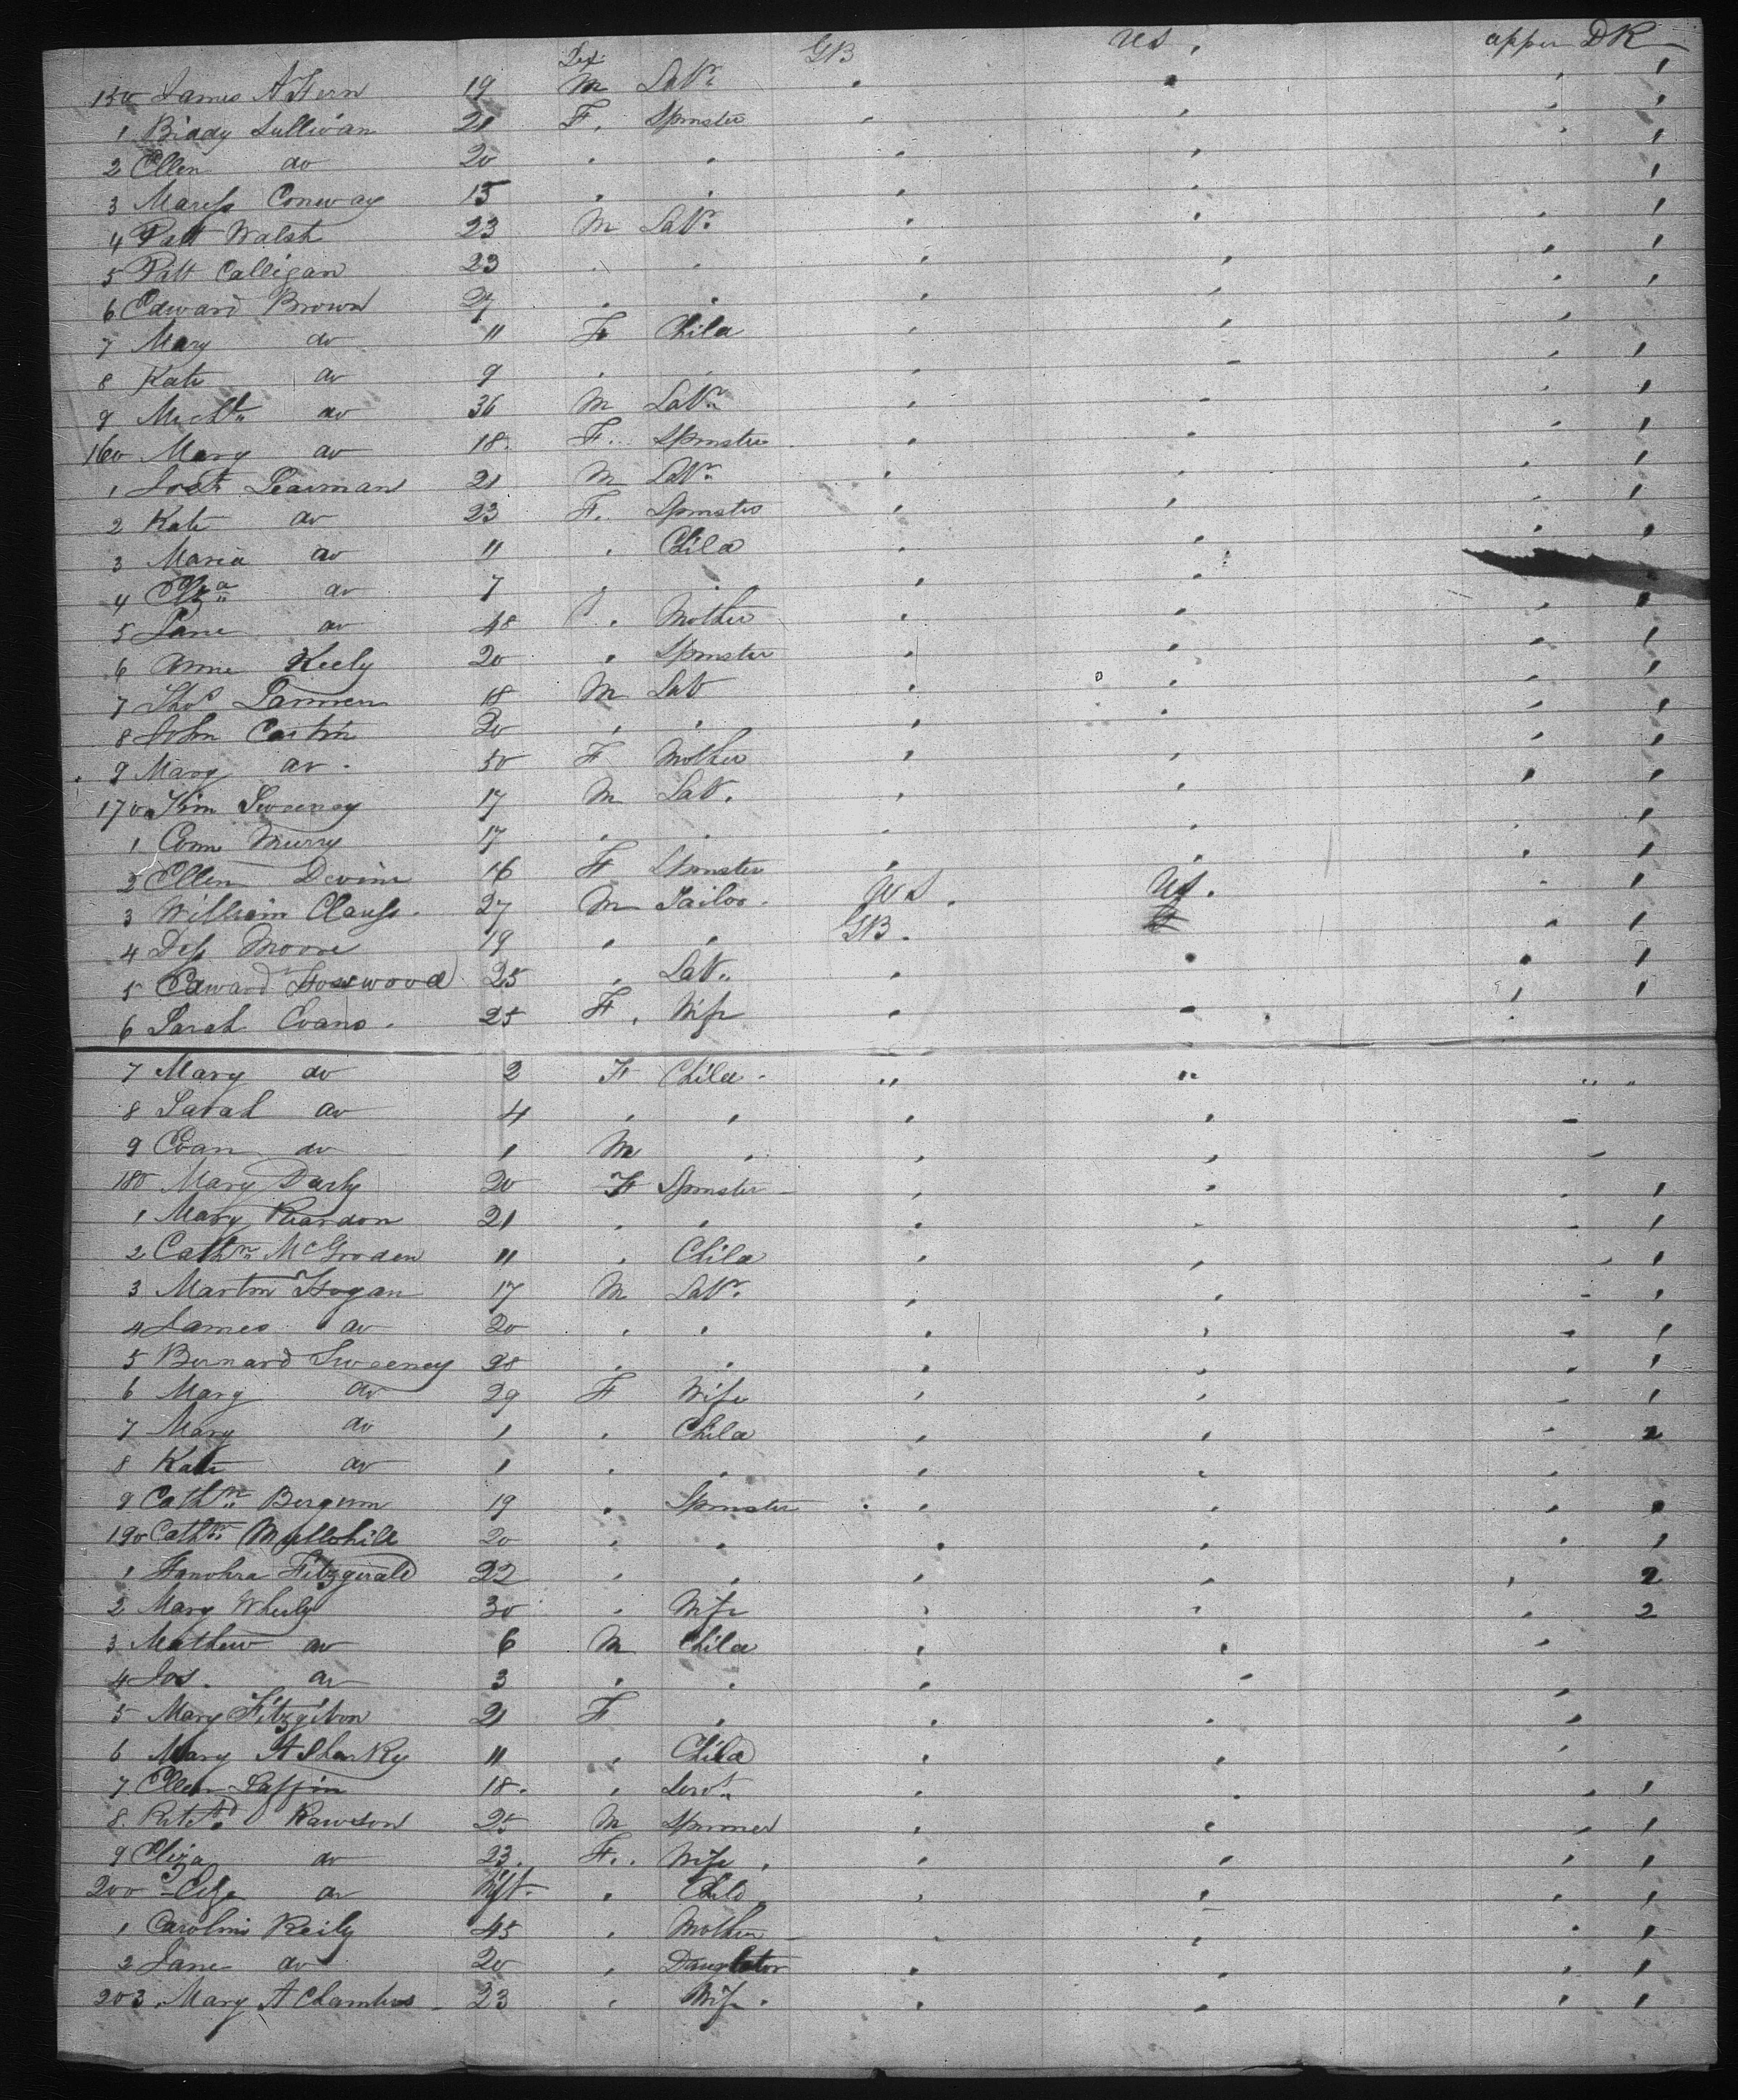 Sex GB US. upper DK
150 James A Hern 19 M Labr " " ' 1
1 Biddy Sullivan 21 F. Spinster ' ' ' 1
2 Ellen do 20 ' ' ' ' ' 1
3 Conway 15 ' ' ' ' 1
4 Patt Walsh 23 M Labr ' ' ' 1
5 Patt Calligan 23 ' ' ' ' ' 1
6 Edward Brown 27 ' ' ' ' ' 1
7 Mary do 11 F Child ' ' '
8 Kate do 9 ' ' ' ' ' 1
9 Michl do 36 M Labr ' ' ' 1
160 Mary do 18. F. Spinster ' ' ' 1
1 Pearman 21 M Labr ' ' ' 1
2 Kate do 23 F. Spinster ' ' ' 1
3 Maria do 11 ' Child ' ' ' 1
4 Eliza do 7 ' ' ' '
5 Jane do 48 ' Mother ' ' ' 1
6 Anne Keely 20 ' Spinster ' ' ' 1
7 Thos 18 M Lab ' ' ' 1
8 John Costin 20 ' ' ' ' ' 1
9 Mary do. 50 F Mother ' ' ' 1
170 Sweeney 17 M Lab. ' ' ' 1
1 Conn Murry 17 ' ' ' ' ' 1
2 Ellen Devine 16 F Spinster ' ' ' 1
3 William Clauss. 27 M Tailor. US. US. ' 1
4 Moore 19 ' ' GB. ' 1
5 Edward 25 ' Lab. ' ' ' 1
6 Sarah Evans. 25 F. Wife ' ' ' 1
7 Mary do 2 F Child. " " " "
8 Sarah do 4 ' ' ' ' '
9 Evan do 1 M ' ' ' '
180 Mary Darly 20 F Spinster ' ' ' 1
1 Mary Reardon 21 ' ' ' ' ' 1
2 Cathn McGrooden 11 ' Child ' ' ' 1
3 Martin Hogan 17 M Labr ' ' ' 1
4 James do 20 ' ' ' ' ' 1
5 Bernard Sweeney 28 ' ' ' ' ' 1
6 Mary do 29 F Wife ' ' ' 1
7 Mary do 1 ' Child ' ' ' 2
8 Kate do 1 ' ' ' ' '
9 Cathn 19 ' Spinster ' ' '
190 Cathn Mullohill 20 ' ' ' ' ' 1
1 Honohra Fitzgerald 22 ' ' ' ' ' 2
2 Mary Wheely 30 ' Wife ' ' ' 2
3 Mathew do 6 M Child ' ' '
4 Jos. do 3 ' ' ' ' '
5 Mary Fitzgibon 21 F ' ' ' '
6 Mary A Sharky 11 ' Child ' ' '
7 Ellen Laffin 18. ' Servt. ' ' ' 1
8. Rawson 25 M Spinner ' ' ' 1
9 Eliza do 23. F. Wife. ' ' ' 1
200 do Inft. ' Child ' ' ' 1
1 Caroline Reily 45 ' Mother ' ' ' 1
2 Jane do 20 ' Daughter ' ' ' 1
203 Mary A Chambers 23 ' Wife. ' ' ' 1